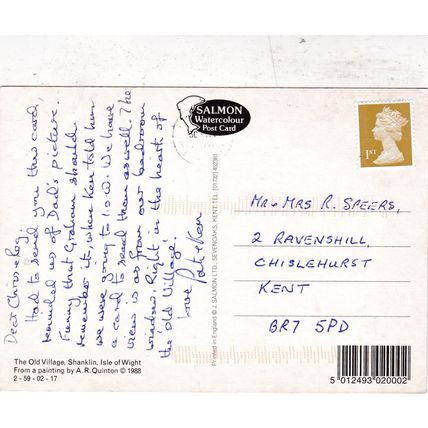 Dear Chris & Ray,
Had to send you this card,
reminded us of Dad's picture.
Funny that Graham should
remember it, when Ken told him
we were going to I.O.W. We have
a card to send them as well. The
view is as from our bedroom
window. Right in the heart of
the 'old Village'.
Love
Pat & Ken
The Old Village, Shanklin, Isle of Wight
From a painting by A.R. Quinton © 1988
2 - 59 - 02 - 17
SALMON
Watercolour
Post Card
Printed in England © J. SALMON LTD., SEVENOAKS, KENT. TEL: (01732) 452381
1ST
MR & MRS R. SPEERS,
2 RAVENSHILL,
CHISLEHURST
KENT
BR7 5PD
5 012493 020002